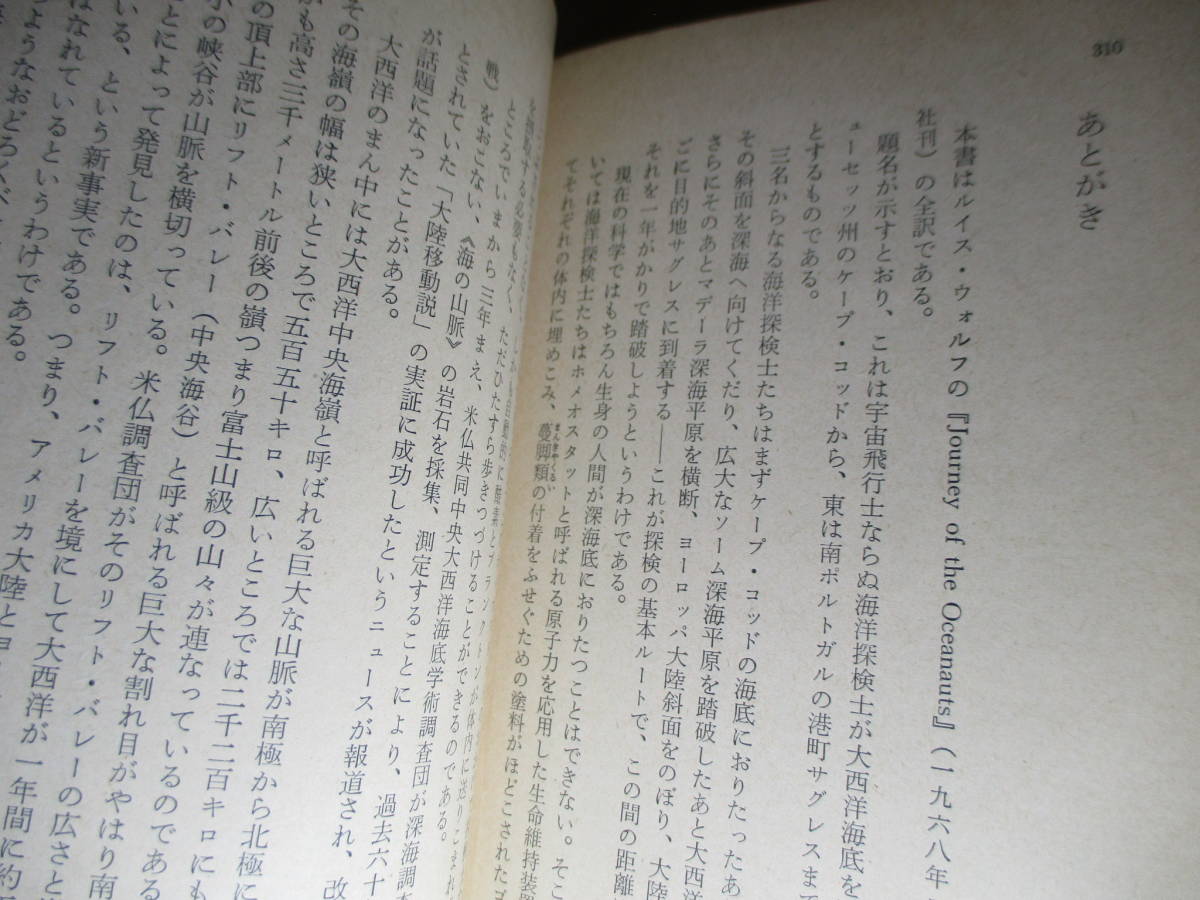 310
あとがき
本書はルイス・ウォルフの『Journey of the Oceanauts』(一九六八年
社刊)の全訳である。
題名が示すとおり、これは宇宙飛行士ならぬ海洋探検士が大西洋海底を
ューセッツ州のケープ・コッドから、東は南ポルトガルの港町サグレスま
とするものである。
三名からなる海洋探検士たちはまずケープ・コッドの海底におりたったあ
その斜面を深海へ向けてくだり、広大なソーム深海平原を踏破したあと大西洋
さらにそのあとマデーラ深海平原を横断、ヨーロッパ大陸斜面をのぼり、大陸
ごに目的地サグレスに到着する——これが探検の基本ルートで、この間の距離
それを一年がかりで踏破しようというわけである。
現在の科学ではもちろん生身の人間が深海底におりたつことはできない。そこ
いては海洋探検士たちはホメオスタットと呼ばれる原子力を応用した生命維持装置
てそれぞれの体内に埋めこみ、蔓脚類の付着をふせぐための塗料がほどこされたゴ
を摂取する必要もなく、ただひたすら歩きつづけることができるのである。
ところでいまから三年まえ、米仏共同中央大西洋海底学術調査団が深海調査
戦)をおこない、《海の山脈》の岩石を採集、測定することにより、過去六十
とされていた「大陸移動説」の実証に成功したというニュースが報道され、改
が話題になったことがある。
大西洋のまん中には大西洋中央海嶺と呼ばれる巨大な山脈が南極から北極に
その海嶺の幅は狭いところで五百五十キロ、広いところでは二千二百キロにも
かも高さ三千メートル前後の嶺つまり富士山級の山々が連なっているのである
の頂上部にリフト・バレー(中央海谷)と呼ばれる巨大な割れ目がやはり南
の峡谷が山脈を横切っている。米仏調査団がそのリフト・バレーの広さと
とによって発見したのは、リフト・バレーを境にして大西洋が一年間に約
はなれている、という新事実である。つまり、アメリカ大陸と
ようなおどろくべ
なれているというわけである。